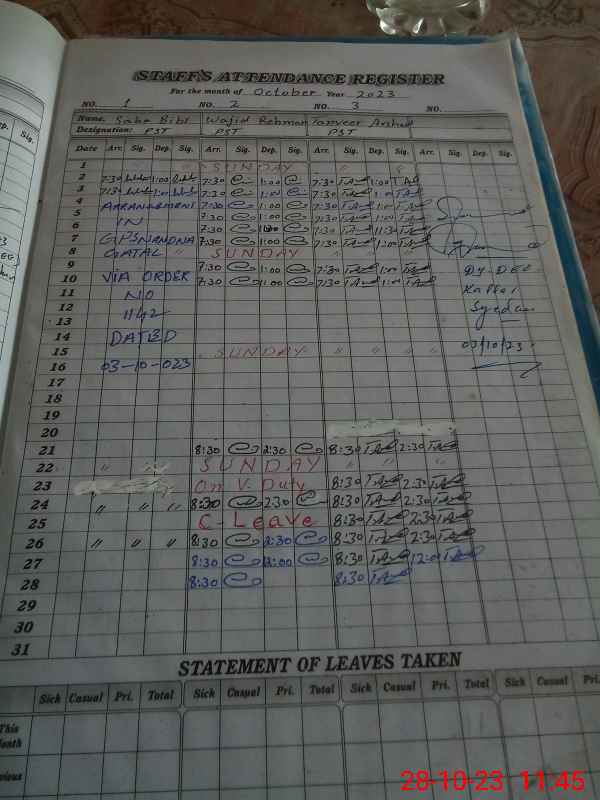 STAFF'S ATTENDANCE REGISTER
For the month of October Year 2023
NO. 1 NO. 2 NO. 3 NO.
Name. Saba Bibi Wajid Rehman Tanveer Arshad
Designation: PST PST PST
Date Arr. Sig. Dep. Sig. Arr. Sig. Dep. Sig. Arr. Sig. Dep. Sig. Arr. Sig. Dep. Sig.
1 SUNDAY
2 7:30 1:00 7:30 1:00 7:30 1:00
3 7:30 1:00 7:30 1:00 7:30 1:00
4 ARRANGEMENT 7:30 1:00 7:30 1:00
5 IN 7:30 1:00 7:30 1:00
6 7:30 7:30
7 7:30 1:00 7:30 1:00
8 SUNDAY
9 7:30 1:00 7:30 1:00
10 VIA ORDER 7:30 7:30 1:00
11 NO
12 1142
13
14 DATED
15 SUNDAY
16 03-10-023
17
18
19
20
21 8:30 2:30 8:30 2:30
22 SUNDAY
23 On V. Duty 8:30 2:30
24 8:30 2:30 8:30 2:30
25 C-Leave 8:30 2:30
26 8:30 2:30 8:30 2:30
27 8:30 12:00 8:30 12:00
28 8:30 8:30
29
30
31
Dy. DEO
Syedan
STATEMENT OF LEAVES TAKEN
Sick Casual Pri. Total Sick Casual Pri. Total Sick Casual Pri. Total Sick Casual Pri.
This
28-10-23 11:45